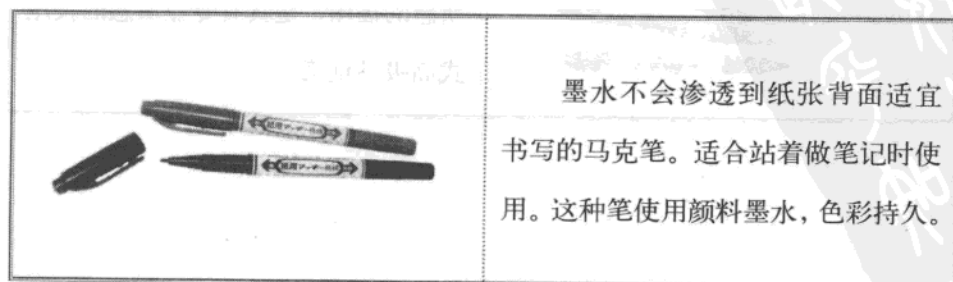 墨水不会渗透到纸张背面适宜
书写的马克笔。适合站着做笔记时使
用。这种笔使用颜料墨水，色彩持久。